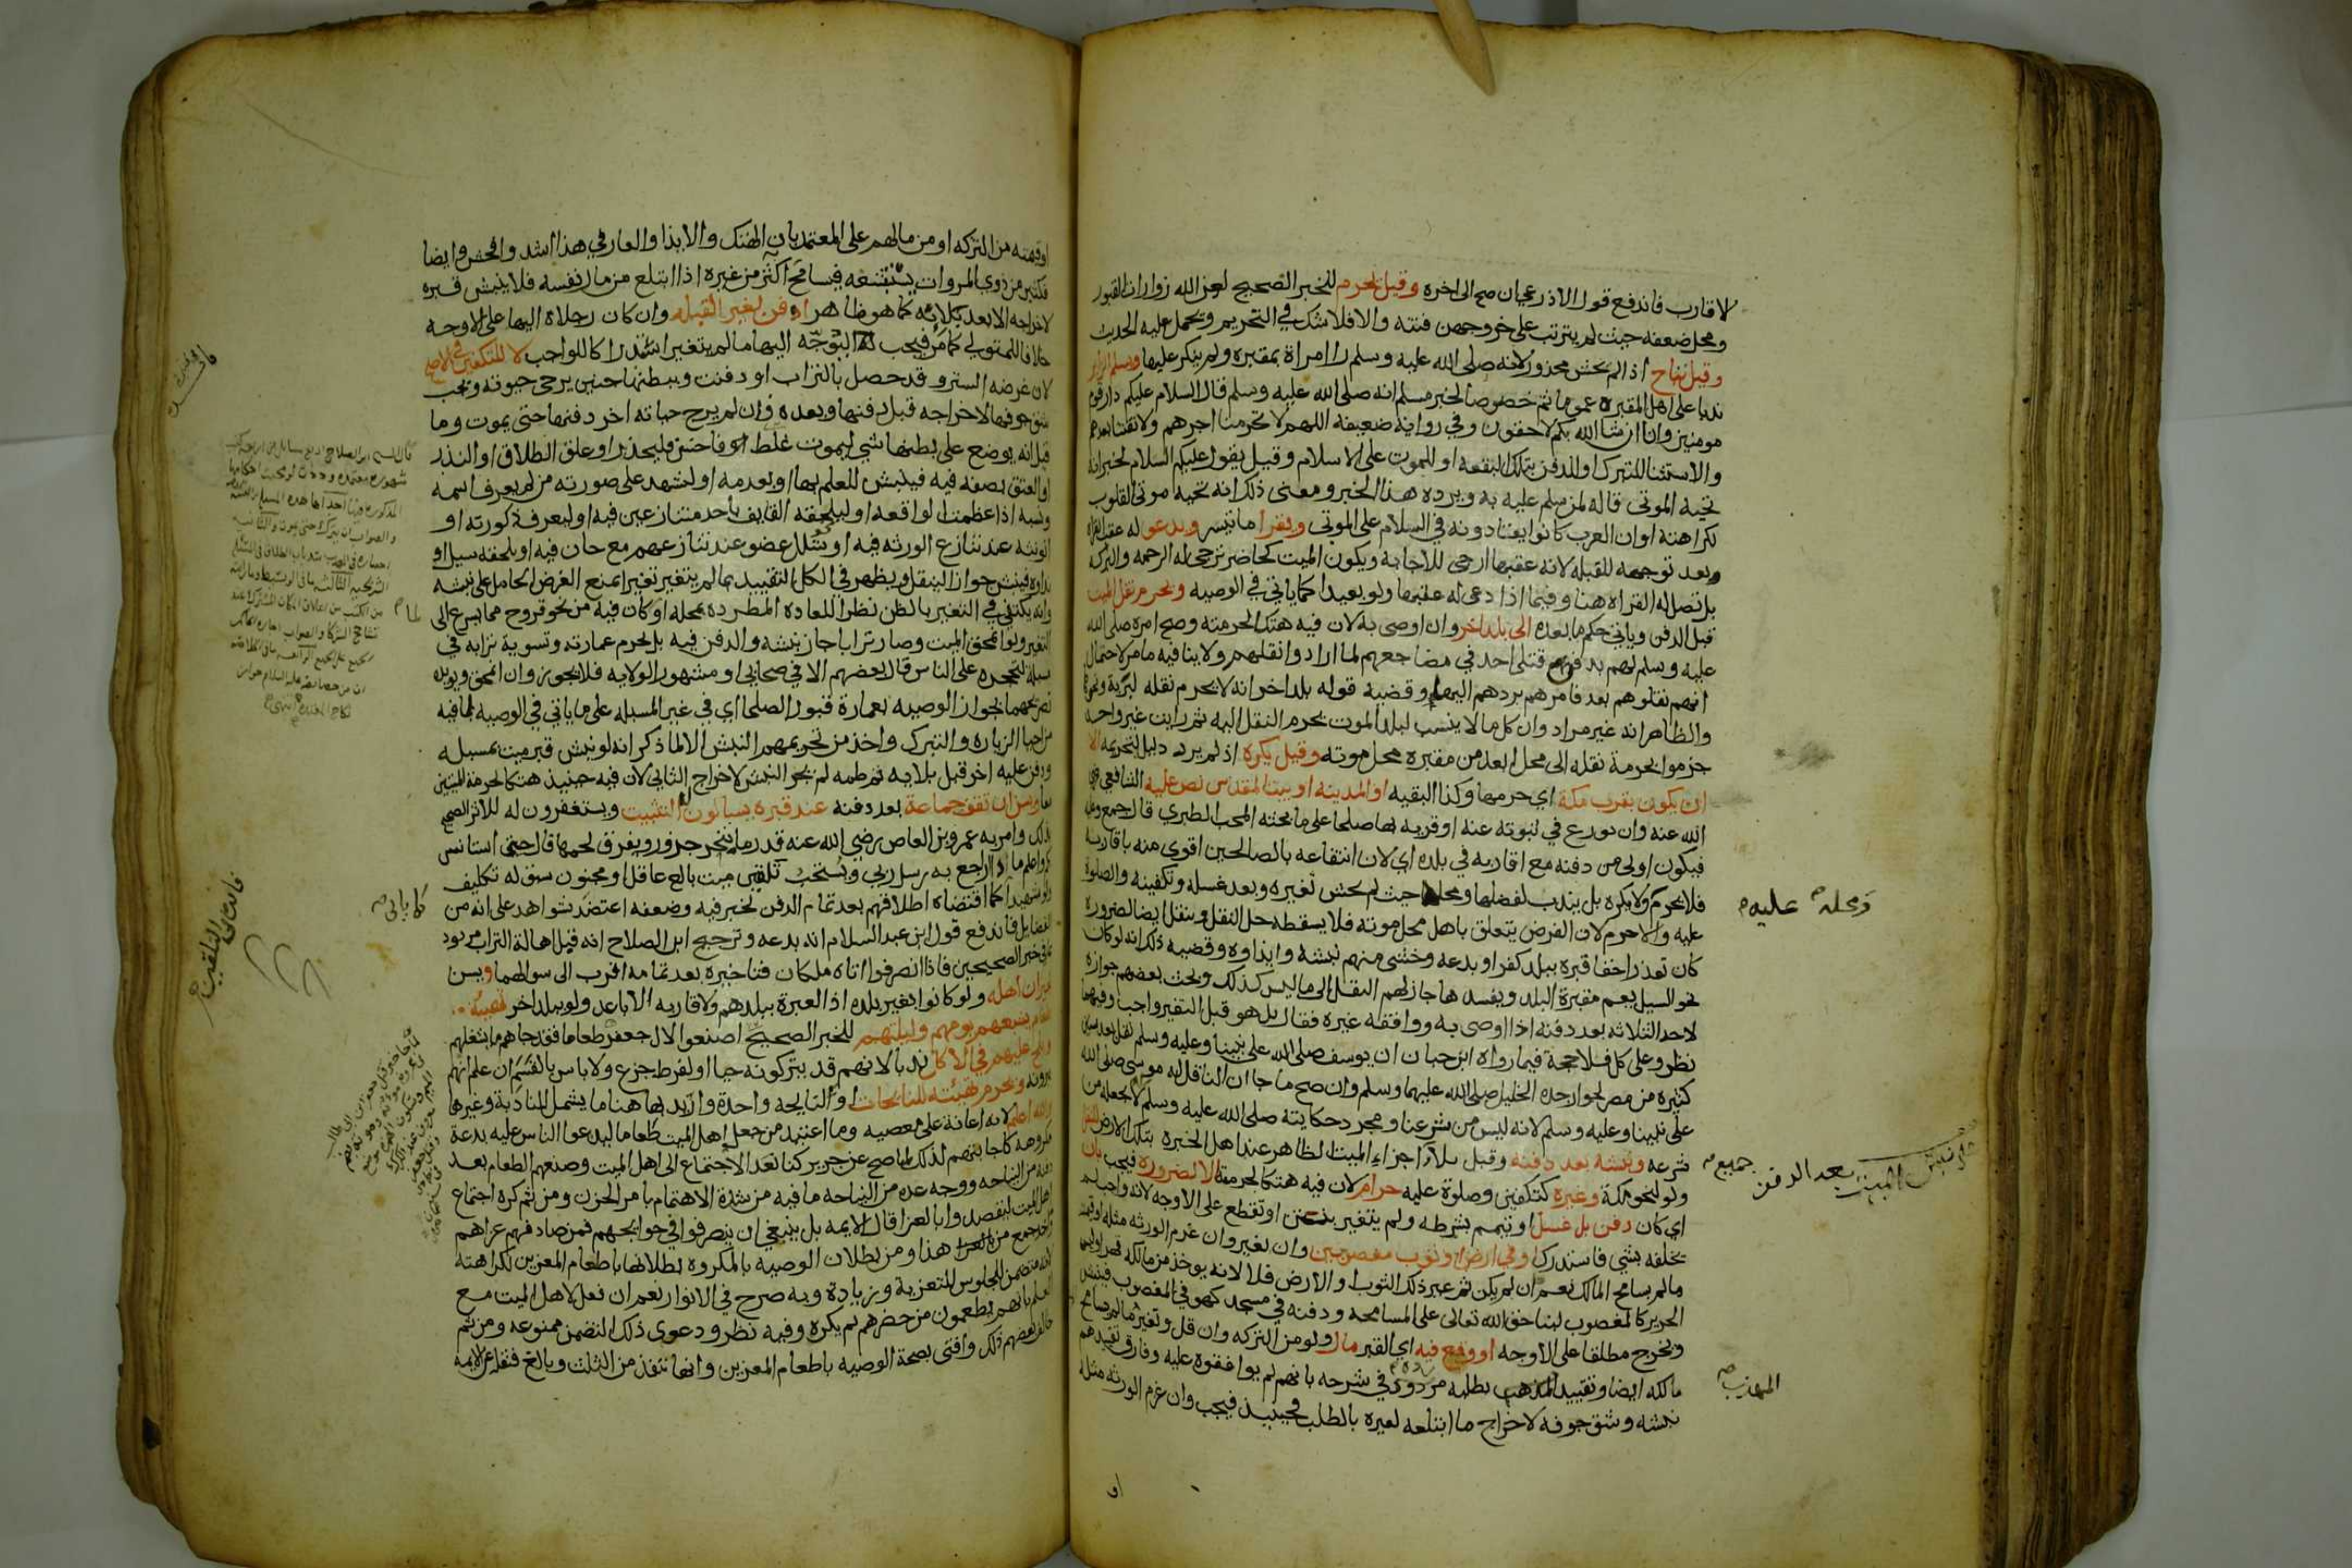 لاقارب فاندفع قول الاذرعي ان صح الى اخره وقيل تحرم للخبر الصحيح لعن الله زوارات القبور
ومحل ضعفه حيث لم يترتب على خروجهن فتنه والا فلا شك في التحريم ويحمل عليه الحديث
وقيل تباح اذا لم تخش محذورا لانه صلى الله عليه وسلم راا مراة بمقبره ولم ينكر عليها ويسلم الزائر
ندبا على اهل المقبره عموما ثم خصوصا لخبر مسلم انه صلى الله عليه وسلم قال السلام عليكم دار قوم
مومنين وانا ان شا الله بكم لاحقون وفي رواية ضعيفه اللهم لا تحرمنا اجرهم ولا تفتنا بعدهم
والاستثنا للتبرك او للدفن بتلك البقعه او للموت على الاسلام وقيل يقول عليكم السلام لخبر انه
تحيه الموتى قاله لمن سلم عليه به ويرده هذا الخبر ومعنى ذلك انه تحيه موتى القلوب
لكراهته او ان العرب كانوا يعتادونه في السلام على الموتى ويقرا ما تيسر ويدعو له عقب القراه
وبعد توجهه للقبله لانه عقبها ارجى للاجابه ويكون الميت كحاضر ترجى له الرحمه والبركه
بل تصل له القراه هنا وفيما اذا دعى له عقبها ولو بعيدا كما ياتي في الوصيه ويحرم نقل الميت
قبل الدفن وياتي حكم ما بعده الى بلد اخر وان اوصى به لان فيه هتك الحرمته وصح امره صلى الله
عليه وسلم لهم بدفن قتلى احد في مضاجعهم لما ارادوا نقلهم ولا ينافيه ما مر لاحتمال
انهم نقلوهم بعد فامرهم بردهم اليها وقضية قوله بلد اخر انه لا يحرم نقله لتربة ونحوها
والظاهر انه غير مراد وان كل ما لا ينسب لبلد الموت يحرم النقل اليه ثم رايت غير واحد
جزموا بحرمة نقله الى محل ابعد من مقبرة محل موته وقيل يكره اذ لم يرد دليل لتحريمه الا
ان يكون بقرب مكة اي حرمها وكذا البقيه او المدينه او بيت المقدس نص عليه الشافعي رضي
الله عنه وان نوزع في ثبوته عنه او قريه بها صلحا على ما بحثه المحب الطبري قال جمع وعليه
فيكون اولى من دفنه مع اقاربه في بلده اي لان انتفاعه بالصالحين اقوى منه باقاربه
فلا يحرم ولا يكره بل يندب لفضلها ومحله حيث لم يخش تغيره وبعد غسله وتكفينه والصلوة
عليه والا حرم لان الفرض يتعلق باهل محل موته فلا يسقطه حل النقل وينقل ايضا لضرورة
كان تعذر اخفا قبره ببلد كفر او بدعه وخشى منهم نبشه وايذاوه وقضيه ذلك انه لو كان
نحو السيل يعم مقبرة البلد ويفسدها جاز لهم النقل الى ما ليس كذلك وبحث بعضهم جوازه
لاحد الثلاثه بعد دفنه اذا اوصى به ووافقه غيره فقال بل هو قبل التغير واجب وفيهما
نظر وعلى كل فلا حجة فيما رواه ابن حبان ان يوسف صلى الله على نبينا وعليه وسلم نقل بعد سنين
كثيره من مصر لجوار جده الخليل صلى الله عليهما وسلم وان صح ما جا ان الناقل له موسى صلى الله
على نبينا وعليه وسلم لانه ليس من شرعنا ومجرد حكايته صلى الله عليه وسلم لا تجعله من
شرعه ونبشه بعد دفنه وقبل بلاء اجزاء الميت الظاهر عند اهل الخبرة بتلك الارض للنقل
ولو لنحو مكة وغيره كتكفين وصلوة عليه حرام لان فيه هتكا لحرمته الا لضروره فيجب بان
اي كان دفن بل غسل او تيمم بشرطه ولم يتغير بنتن او تقطع على الاوجه لانه واجب لم
يخلفه شي فاستدرك او في ارض او ثوب مغصوبين وان تغير وان غرم الورثه مثله او قيمته
ما لم يسامح المالك نعم ان لم يكن ثم غير ذلك الثوب او الارض فلا لانه يوخذ من مالكه قهرا
الحرير كالمغصوب لبنا حق الله تعالى على المسامحه ودفنه في مسجد كهو في المغصوب فينبش
ويخرج مطلقا على الاوجه او وقع فيه اي القبر مال ولو من التركه وان قل وتغير ما لم يسامح
مالكه ايضا وتقييد المهذب بطلبه مردود في شرحه بانهم لم يوافقوه عليه وفارق تقييدهم
نبشه وشق جوفه لاخراج ما ابتلعه لغيره بالطلب فحينئذ فيجب وان غرم الورثه مثله
او
ومحله عليه
جميع
مطلب نبش الميت بعد الدفن
المهذب
او قيمته من التركه او من مالهم على المعتمد بان الهتك والايذا والعار في هذا اشد وافحش وايضا
فكثير من ذوي المروات يستبشعه فيسامح اكثر من غيره اذا ابتلع من مال نفسه فلا ينبش قبره
لاخراجه الا بعد بلائه كما هو ظاهر او دفن لغير القبله وان كان رجلاه اليها على الاوجه
خلافا للمتولي كما مر فيجب ليوجه اليها ما لم يتغير استدراكا للواجب لا للتكفين في الاصح
لان غرضه الستر وقد حصل بالتراب او دفنت وببطنها جنين يرجى حيوته ويجب
شق جوفها لاخراجه قبل دفنها وبعده فان لم يرج حياته اخر دفنها حتى يموت وما
قيل انه يوضع على بطنها شي ليموت غلط فاحش فليحذر او علق الطلاق او النذر
او العتق بصفه فيه فينبش للعلم بها او بعدمه او ليشهد على صورته من لم يعرف اسمه
ونسبه اذا عظمت الواقعه او ليلحقه القايف باحد متنازعين فيه او ليعرف ذكورته او
انوثته عند تنازع الورثه فيه او شلل عضو عند تنازعهم مع جان فيه او يلحقه سيل او
نداوه فينبش جوازا لينقل ويظهر في الكل التقييد بما لم يتغير تغيرا يمنع الغرض الحامل على نبشه
وانه يكتفي في التغير بالظن نظرا للعاده المطرده بمحله او كان فيه من نحو قروح مما يسرع الى
التغير ولو امحق الميت وصار ترابا جاز نبشه والدفن فيه بل يحرم عمارته وتسوية ترابه في
مسبلة لتحجره على الناس قال بعضهم الا في صحابي او مشهور الولايه فلا يجوز وان امحق ويويده
تصريحهما بجواز الوصيه بعمارة قبور الصلحا اي في غير المسبله على ما ياتي في الوصيه لما فيه
من احيا الزياره والتبرك واخذ من تحريمهم النبش الا لما ذكر انه لو نبش قبر ميت بمسبله
ودفن عليه اخر قبل بلايه ثم طمه لم يجز النبش لاخراج الثاني لان فيه حينئذ هتكا لحرمة الميتين
معا ويسن ان تقف جماعة بعد دفنه عند قبره يسالون له التثبيت ويستغفرون له للاثر الصحيح
بذلك وامر به عمرو بن العاص رضي الله عنه قدر ما ينحر جزور ويفرق لحمها قال حتى استانس
بكم واعلم ماذا اراجع به رسل ربي ويستحب تلقين ميت بالغ عاقل او مجنون سبق له تكليف
ولو شهيدا كما اقتضاه اطلاقهم بعد تمام الدفن لخبر فيه وضعفه اعتضد بشواهد على انه من
الفضايل فاندفع قول ابن عبد السلام انه بدعه وترجيح ابن الصلاح انه قبل اهالة التراب مردود
بما في خبر الصحيحين فاذا انصرفوا اتاه ملكان فتاخيره بعد تمامه اقرب الى سوالهما ويسن
لجيران اهله ولو كانوا بغير بلده اذ العبرة ببلدهم ولاقاربه الاباعد ولو ببلد اخر تهيئة
طعام يشبعهم يومهم وليلتهم للخبر الصحيح اصنعوا لال جعفر طعاما فقد جاهم ما يشغلهم
ويلح عليهم في الاكل ندبا لانهم قد يتركونه حيا او لفرط جزع ولا باس بالقسم ان علم انهم
يبرونه ويحرم تهيئته للنايحات او النايحه واحدة واريد بها هنا ما يشمل النادبة وغيرها
والله اعلم لانه اعانة على معصيه وما اعتيد من جعل اهل الميت طعاما ليدعوا الناس عليه بدعة
مكروهه كاجابتهم لذلك لما صح عن جرير كنا نعد الاجتماع الى اهل الميت وصنعهم الطعام بعد
دفنه من النياحه ووجه عده من النياحه ما فيه من شدة الاهتمام بامر الحزن ومن ثم كره اجتماع
اهل الميت ليقصدوا بالعزا قال الايمه بل ينبغي ان ينصرفوا في حوايجهم فمن صادفهم عزاهم
واخذ جمع من هذا ومن بطلان الوصيه بالمكروه بطلانها باطعام المعزين لكراهته
لانه متضمن للجلوس للتعزية وزيادة وبه صرح في الانوار نعم ان فعل لاهل الميت مع
العلم بانهم يطعمون من حضرهم لم يكره وفيه نظر ودعوى ذلك التضمن ممنوعه ومن ثم
خالف بعضهم ذلك وافتى بصحة الوصيه باطعام المعزين وانها تنفذ من الثلث وبالغ فنقله عن الايمه
كما ياتي
فائدة في التلقين